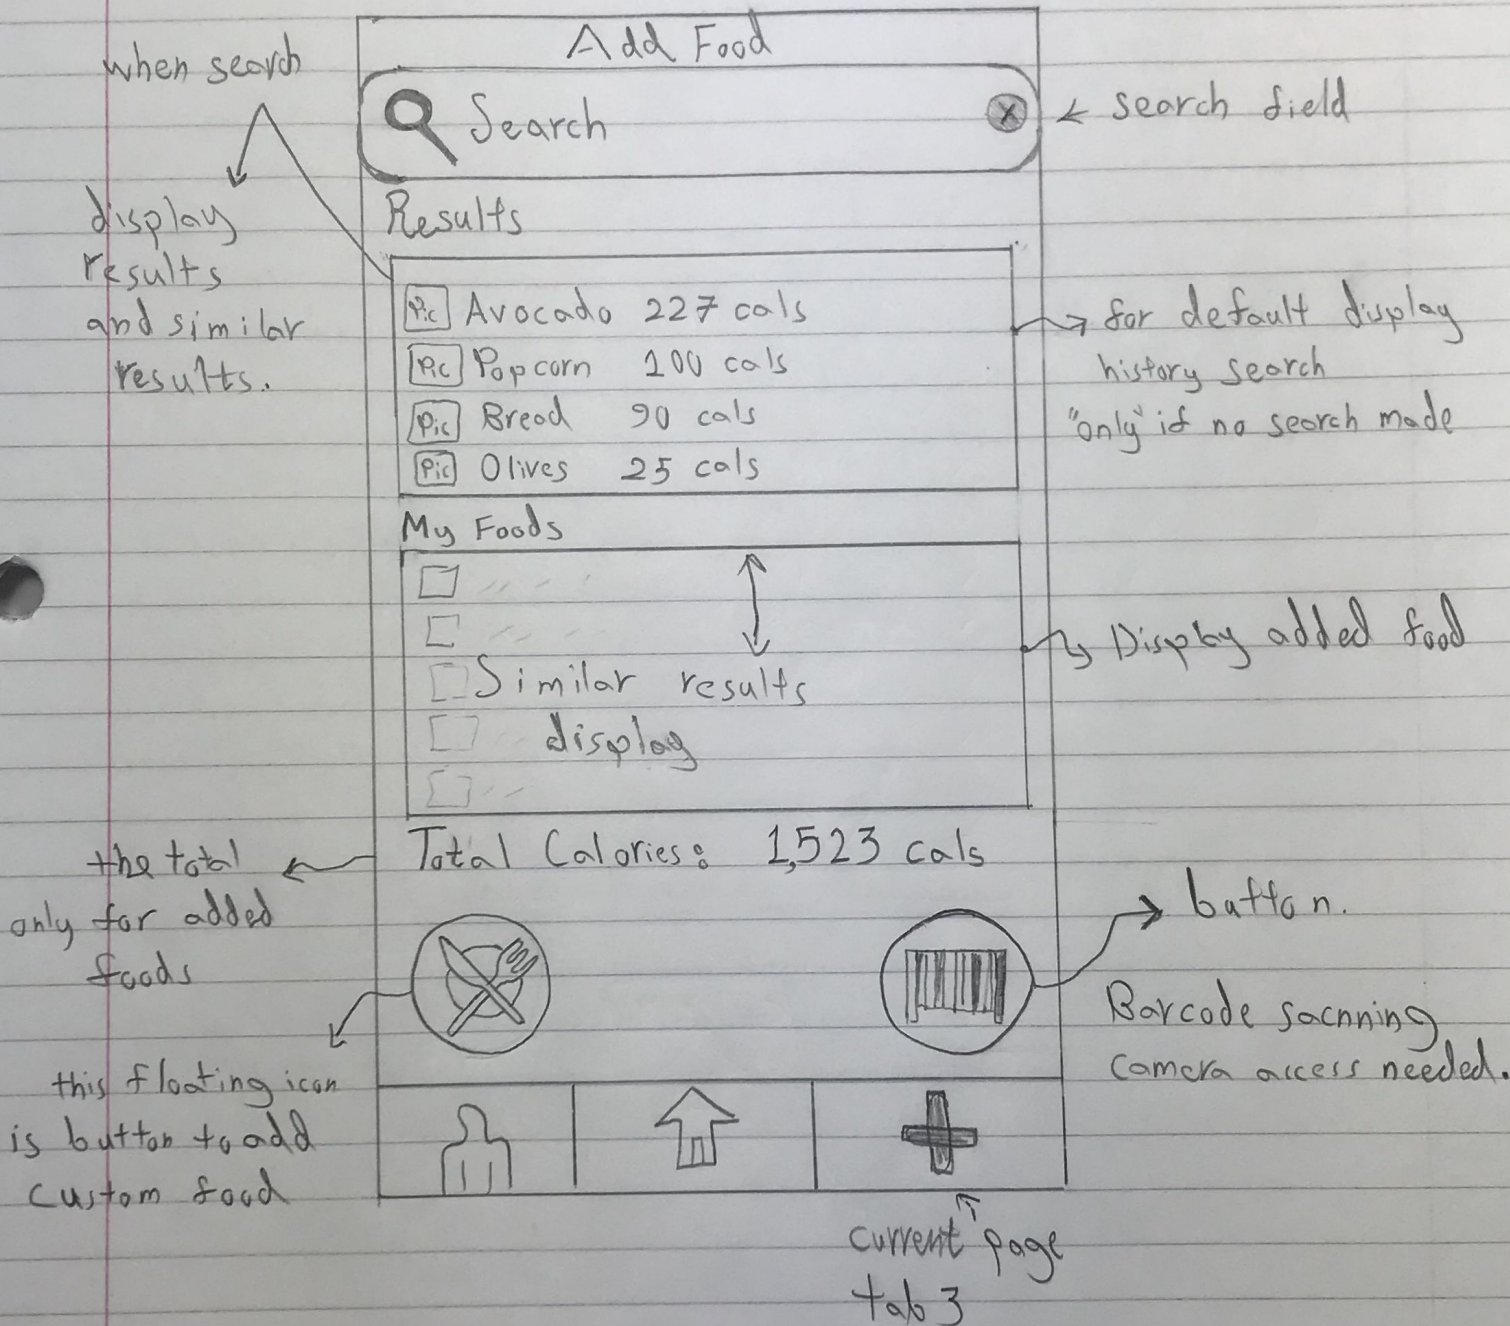 Add Food
when search
Search
X
search field
display
results
and similar
results.
Results
Pic Avocado 227 cals
Pic Popcorn 100 cals
Pic Bread 90 cals
Pic Olives 25 cals
for default display
history search
"only" if no search made
My Foods
Similar results
display
Display added food
Total Calories: 1,523 cals
the total
only for added
foods
button.
Barcode sacnning
camera access needed.
this floating icon
is button to add
custom food
current page
tab 3